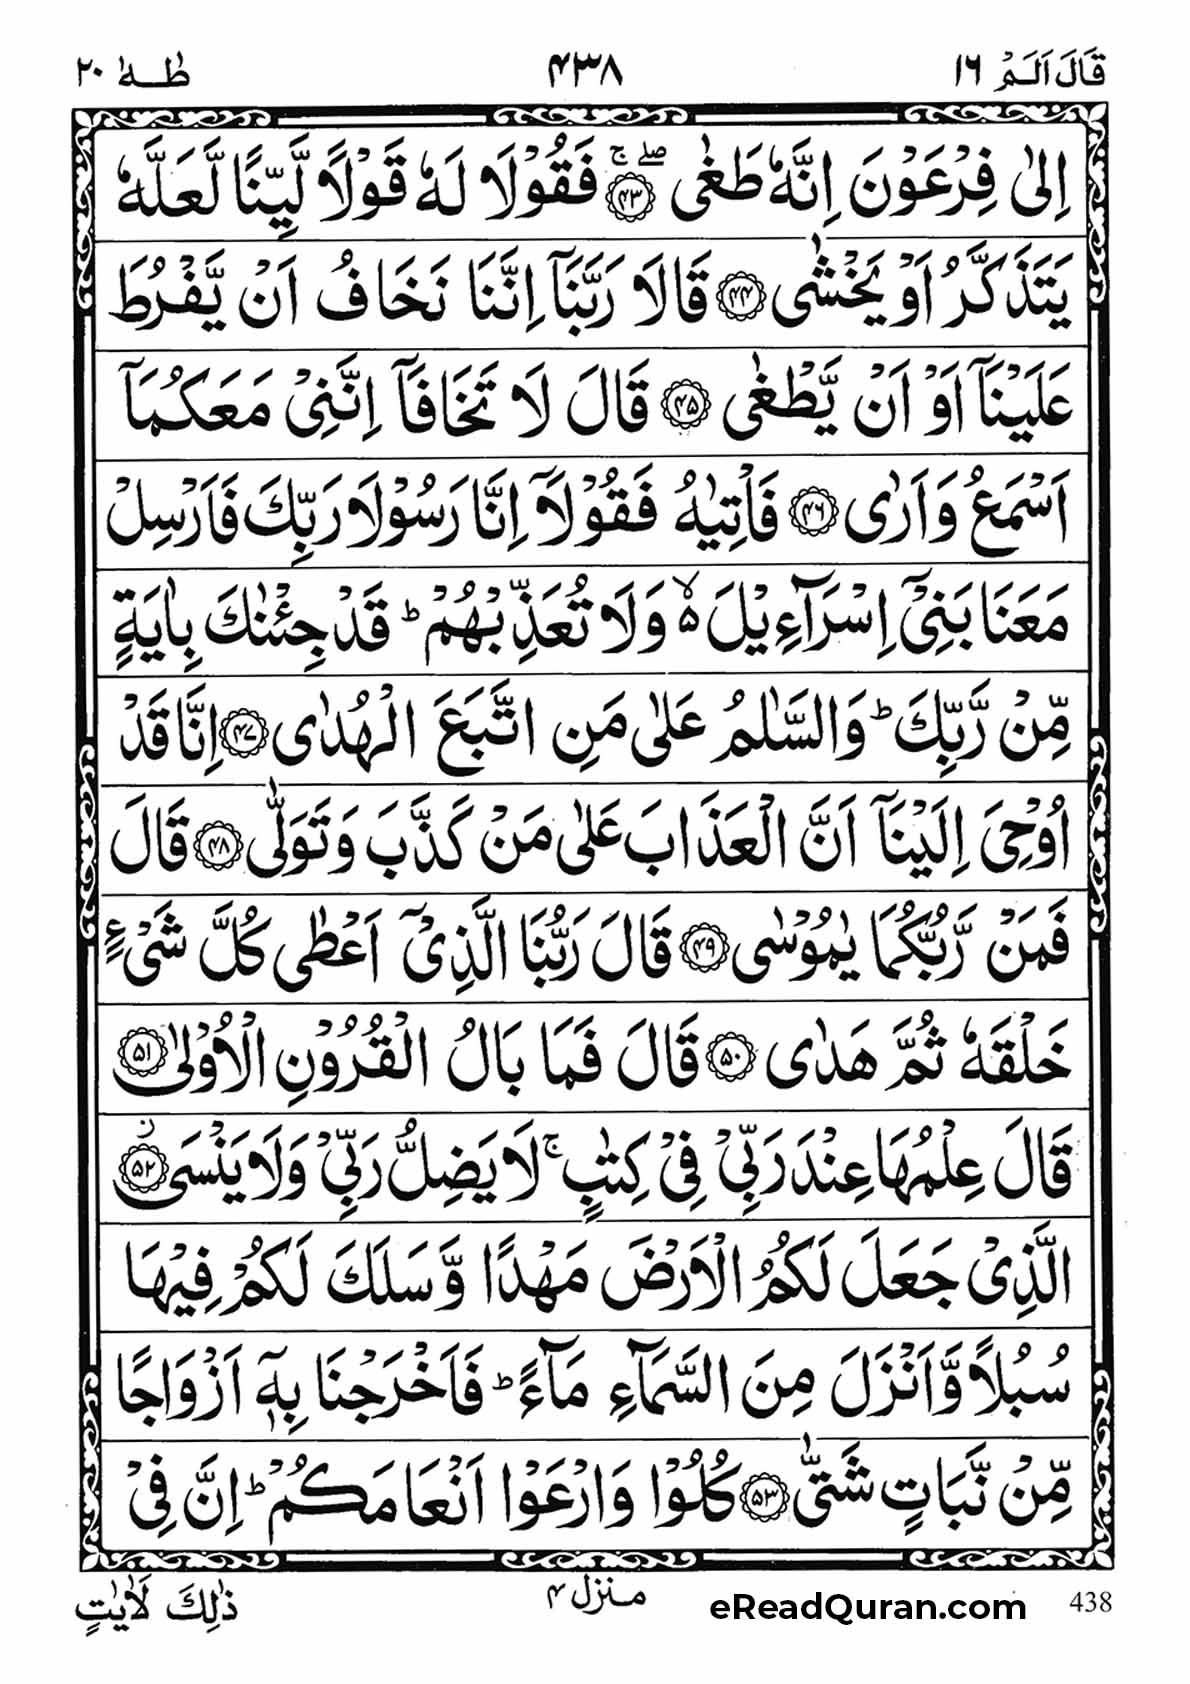 قَالَ اَلَمْ ١٦ ۴۳۸ طٰـهٰ ٢٠
اِلٰى فِرْعَوْنَ اِنَّهٗ طَغٰى ۚۖ‏﴿۴۳﴾ فَقُوْلَا لَهٗ قَوْلًا لَّيِّنًا لَّعَلَّهٗ
يَتَذَكَّرُ اَوْ يَخْشٰى ﴿۴۴﴾ قَالَا رَبَّنَاۤ اِنَّنَا نَخَافُ اَنْ يَّفْرُطَ
عَلَيْنَاۤ اَوْ اَنْ يَّطْغٰى ﴿۴۵﴾ قَالَ لَا تَخَافَاۤ اِنَّنِىْ مَعَكُمَاۤ
اَسْمَعُ وَاَرٰى ﴿۴۶﴾ فَاْتِيٰهُ فَقُوْلَاۤ اِنَّا رَسُوْلَا رَبِّكَ فَاَرْسِلْ
مَعَنَا بَنِىْۤ اِسْرَآءِيْلَ ۙ۵ وَلَا تُعَذِّبْهُمْ ؕ قَدْ جِئْنٰكَ بِاٰيَةٍ
مِّنْ رَّبِّكَ ؕ وَالسَّلٰمُ عَلٰى مَنِ اتَّبَعَ الْهُدٰى ﴿۴۷﴾ اِنَّا قَدْ
اُوْحِىَ اِلَيْنَاۤ اَنَّ الْعَذَابَ عَلٰى مَنْ كَذَّبَ وَتَوَلّٰى ﴿۴۸﴾ قَالَ
فَمَنْ رَّبُّكُمَا يٰمُوْسٰى ﴿۴۹﴾ قَالَ رَبُّنَا الَّذِىْۤ اَعْطٰى كُلَّ شَىْءٍ
خَلْقَهٗ ثُمَّ هَدٰى ﴿۵۰﴾ قَالَ فَمَا بَالُ الْقُرُوْنِ الْاُوْلٰى ﴿۵۱﴾
قَالَ عِلْمُهَا عِنْدَ رَبِّىْ فِىْ كِتٰبٍ ۚ لَا يَضِلُّ رَبِّىْ وَلَا يَنْسَى ز ﴿۵۲﴾
الَّذِىْ جَعَلَ لَكُمُ الْاَرْضَ مَهْدًا وَّسَلَكَ لَكُمْ فِيْهَا
سُبُلًا وَّاَنْزَلَ مِنَ السَّمَآءِ مَآءً ؕ فَاَخْرَجْنَا بِهٖۤ اَزْوَاجًا
مِّنْ نَّبَاتٍ شَتّٰى ﴿۵۳﴾ كُلُوْا وَارْعَوْا اَنْعَامَكُمْ ؕ اِنَّ فِىْ
ذٰلِكَ لَاٰيٰتٍ منزل ۴ eReadQuran.com 438